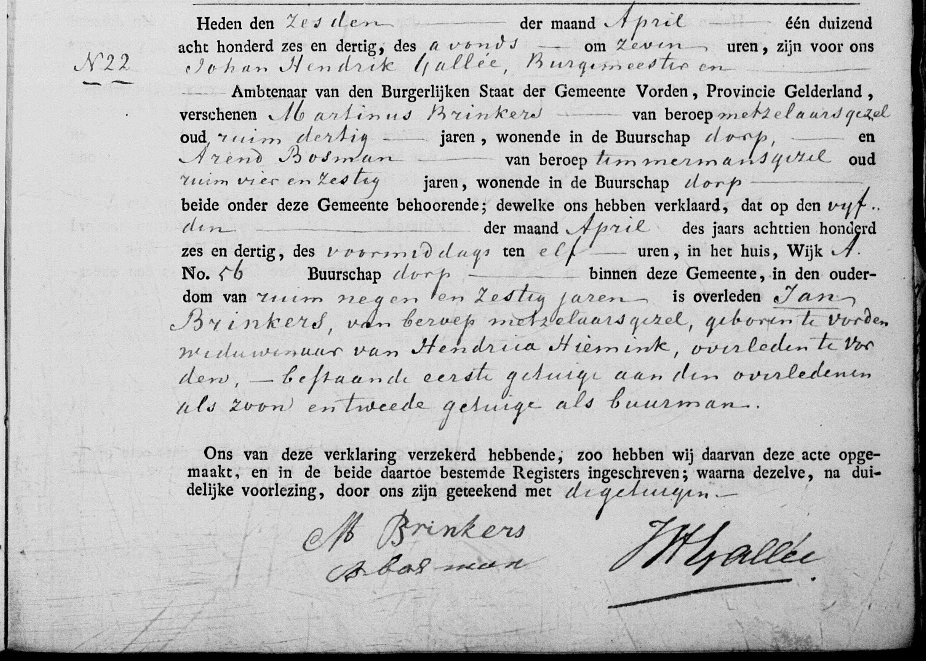 Heden den zesden der maand April één duizend
acht honderd zes en dertig, des avonds om zeven uren, zijn voor ons
N 22
Johan Hendrik Gallée, Burgemeester en
Ambtenaar van den Burgerlijken Staat der Gemeente Vorden, Provincie Gelderland,
verschenen Martinus Brinkers van beroep metzelaarsgezel
oud ruim dertig jaren, wonende in de Buurschap dorp, en
Arend Bosman van beroep timmermansgezel oud
ruim vier en zestig jaren, wonende in de Buurschap dorp
beide onder deze Gemeente behoorende; dewelke ons hebben verklaard, dat op den vyf-
den der maand April des jaars achttien honderd
zes en dertig, des voormiddags ten elf uren, in het huis, Wijk A.
No. 56 Buurschap dorp binnen deze Gemeente, in den ouder-
dom van ruim negen en zestig jaren is overleden Jan
Brinkers, van beroep metzelaarsgezel, geboren te Vorden
weduwenaar van Hendrica Hiemink, overleden te Vor
den, — bestaande eerste getuige aan den overledenen
als zoon en tweede getuige als buurman.
Ons van deze verklaring verzekerd hebbende, zoo hebben wij daarvan deze acte opge-
maakt, en in de beide daartoe bestemde Registers ingeschreven; waarna dezelve, na dui-
delijke voorlezing, door ons zijn geteekend met de getuigen.
M Brinkers
A bosman
JHGallée